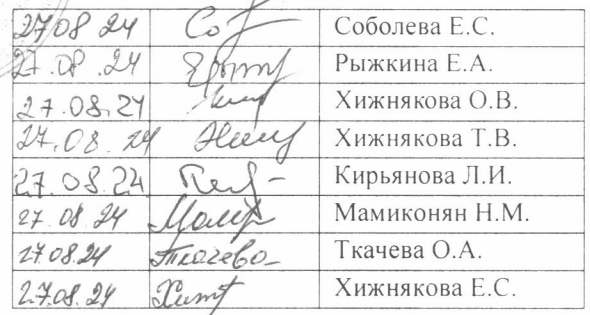 27.08.24 Соболева Е.С.
27.08.24 Рыжкина Е.А.
27.08.24 Хижнякова О.В.
27.08.24 Хижнякова Т.В.
27.08.24 Кирьянова Л.И.
27.08.24 Мамиконян Н.М.
27.08.24 Ткачева Ткачева О.А.
27.08.24 Хижнякова Е.С.